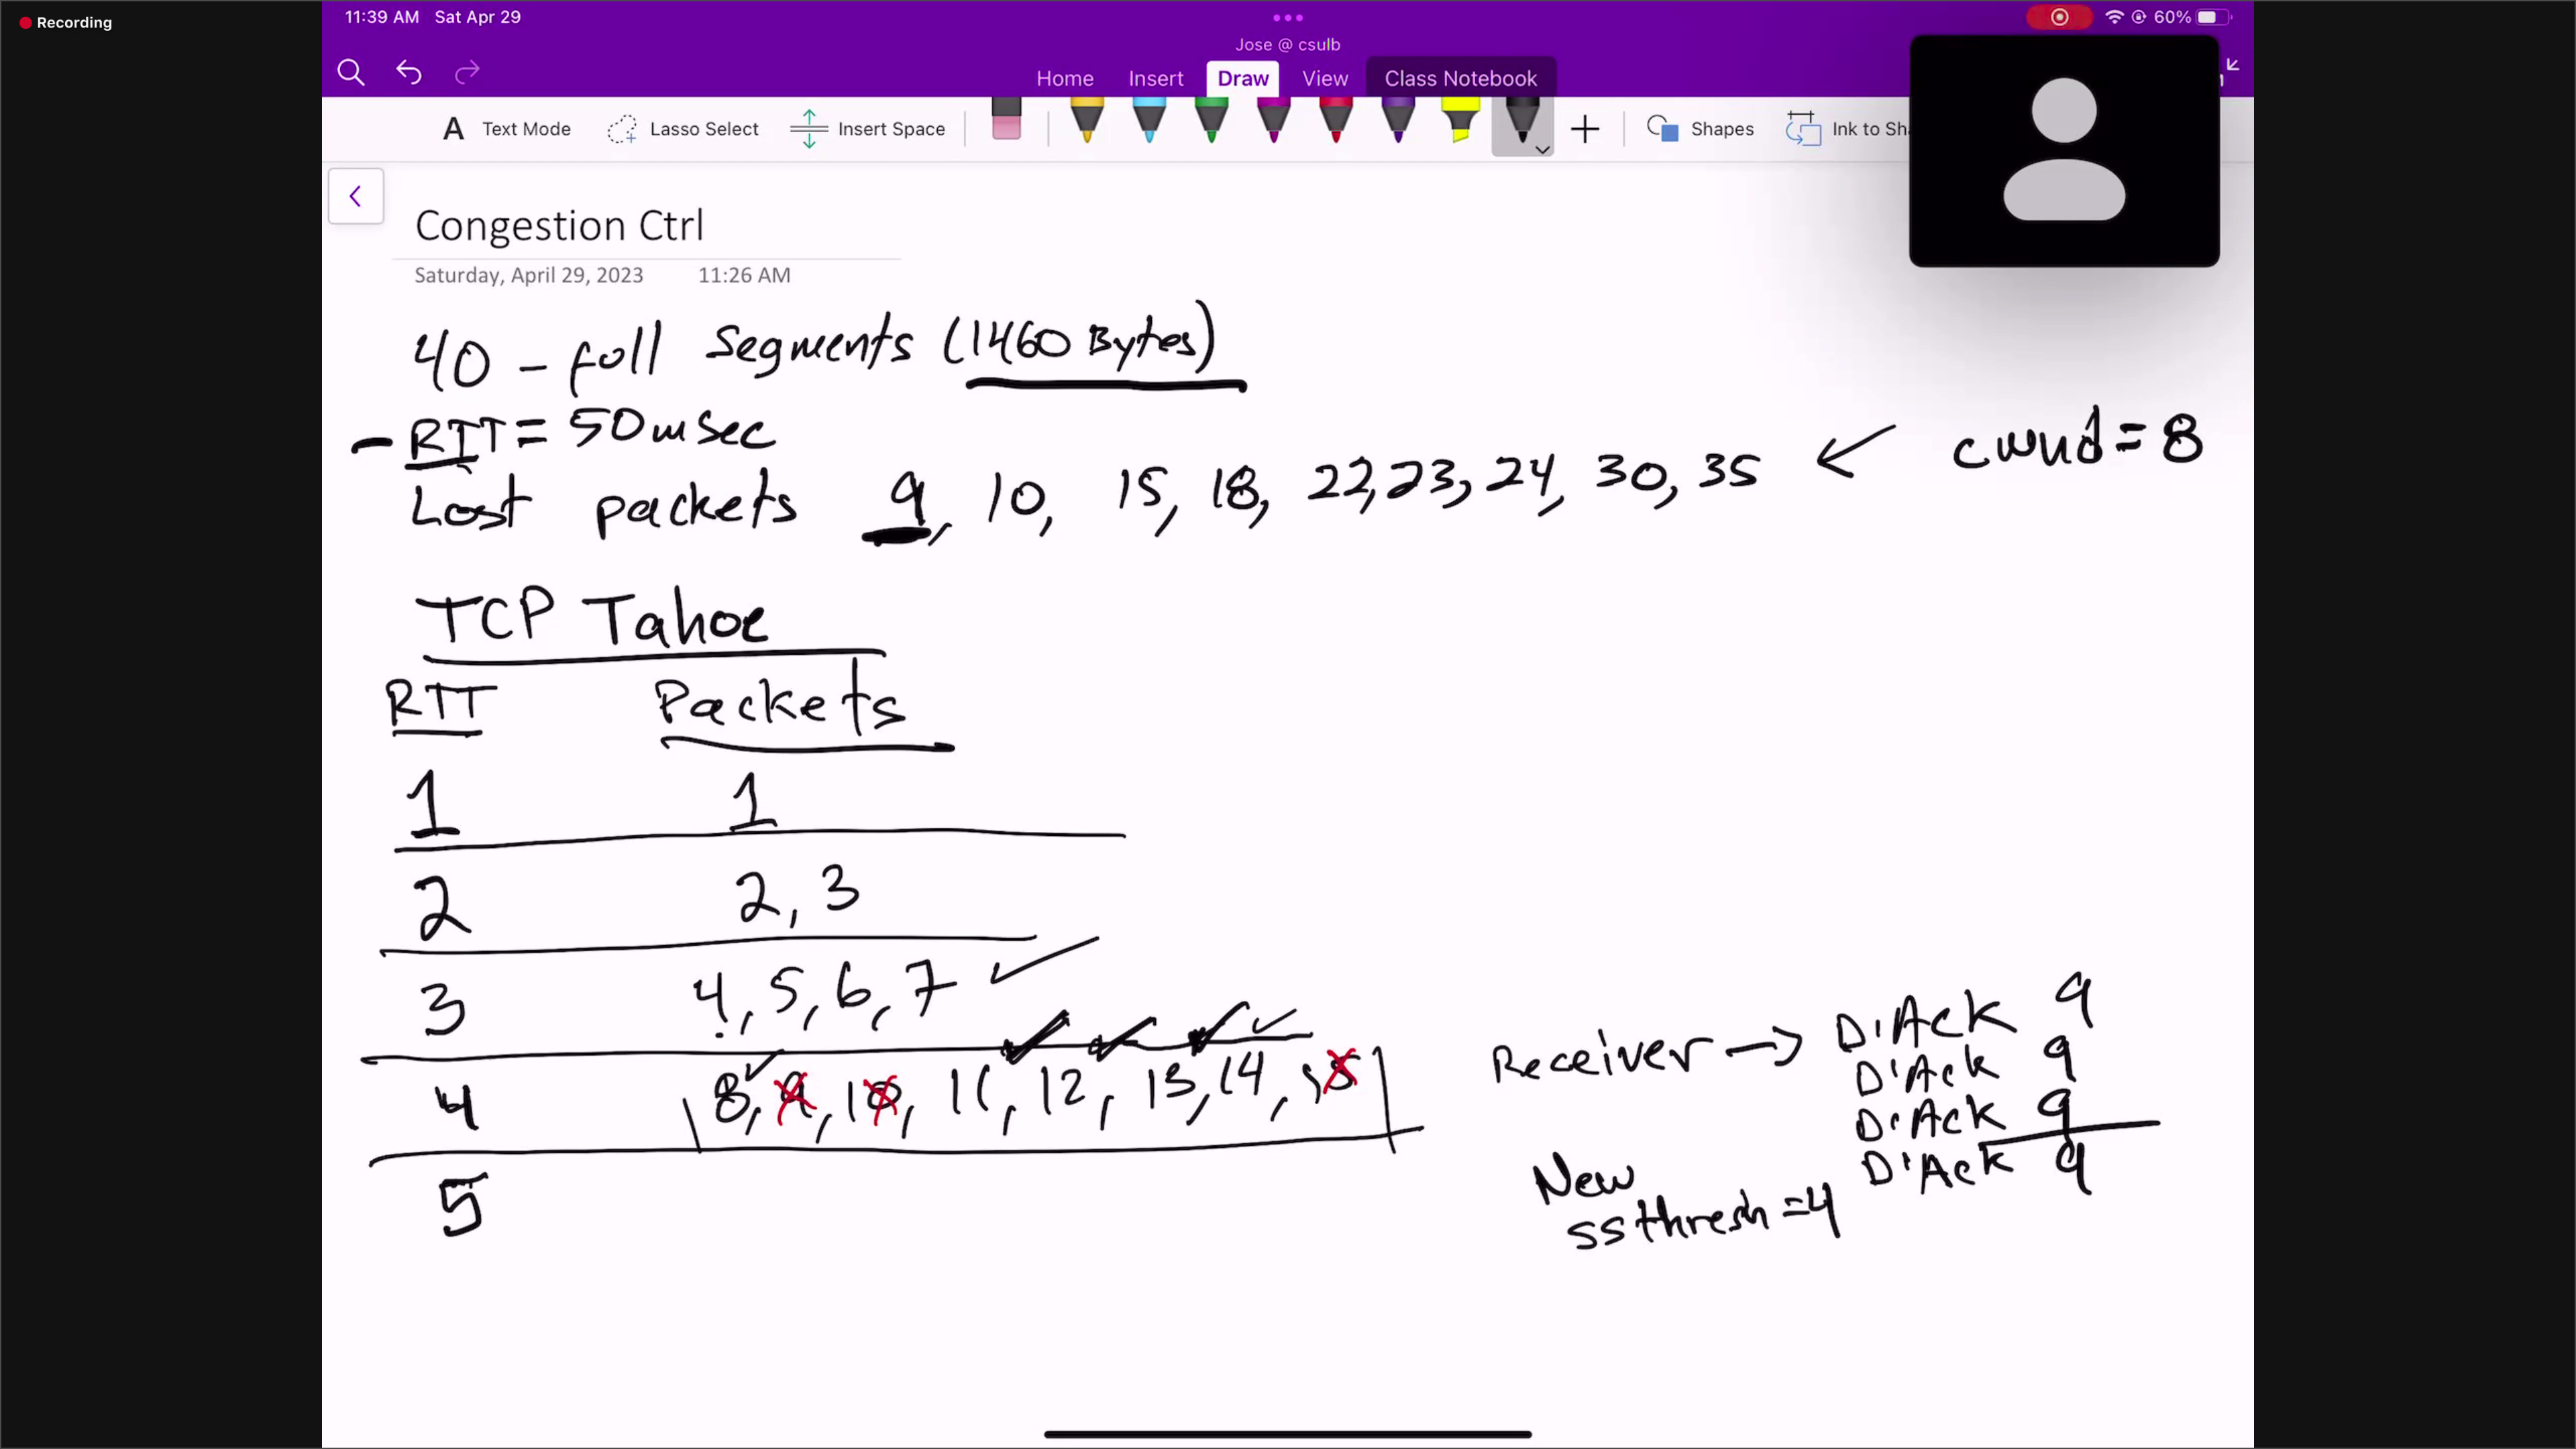 Recording
11:39 AM Sat Apr 29
60%
Jose @ csulb
Home Insert Draw View Class Notebook
A Text Mode Lasso Select Insert Space Shapes Ink to Sh
Congestion Ctrl
Saturday, April 29, 2023 11:26 AM
40 - full Segments (1460 Bytes)
- RTT = 50msec
cwnd = 8
Lost packets 9, 10, 15, 18, 22, 23, 24, 30, 35
TCP Tahoe
RTT Packets
1 1
2 2, 3
3 4, 5, 6, 7
4 8, 9, 10, 11, 12, 13, 14, 15
5
Receiver → D'Ack 9
D'Ack 9
D'Ack 9
D'Ack 9
New
ssthresh = 4